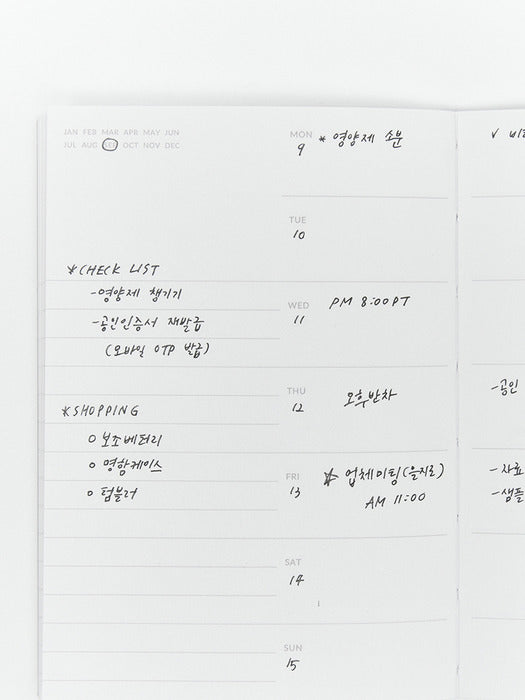 JAN FEB MAR APR MAY JUN
JUL AUG SEP OCT NOV DEC
*CHECK LIST
-영양제 챙기기
-공인인증서 재발급
(모바일 OTP 발급)
*SHOPPING
o 보조배터리
o 명함케이스
o 텀블러
MON
9 * 영양제 소분
TUE
10
WED
11 PM 8:00 PT
THU
12 오후반차
FRI
13 ☆ 업체미팅(을지로)
AM 11:00
SAT
14
SUN
15
-공인
-사료
-샘플